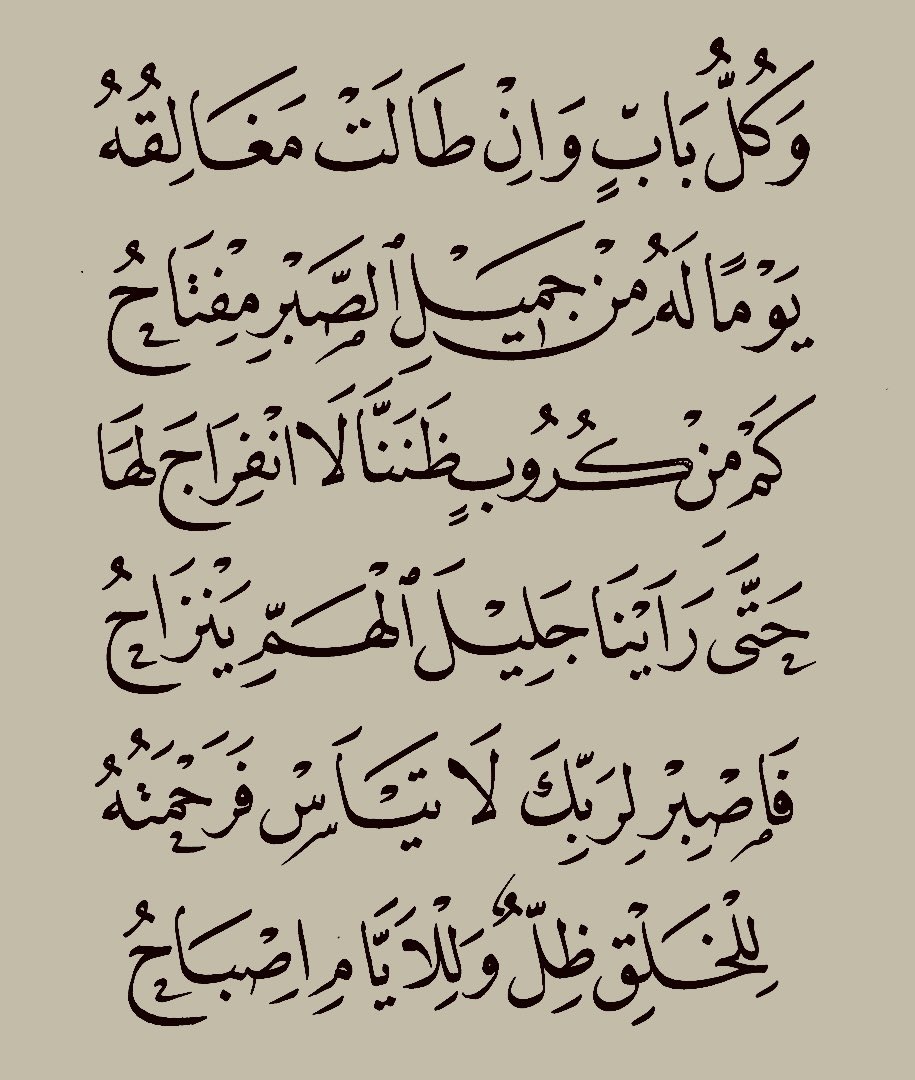 وَكُلُّ بَابٍّ وَاِنْ طَالَتْ مَغَالِقُهُ
يَوْمًا لَهُ مِنْ جَمِيْلِ ٱلصَّبْرِ مِفْتَاحُ
كَمْ مِنْ كُرُوبٍ ظَنَنَّا لَا انْفِرَاجَ لَهَا
حَتَّى رَاَيْنَا جَلِيْلَ ٱلْهَمِّ يَنْزَاحُ
فَاصْبِرْ لِرَبِّكَ لَا تَيْاَسْ فَرَحْمَتُهُ
لِلْخَلْقِ ظِلٌّ وَلِلْاَيَّامِ اِصْبَاحُ